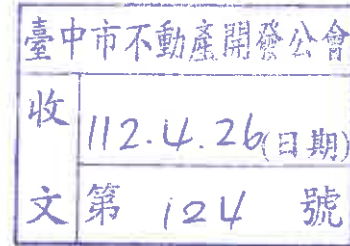 臺中市不動產開發公會
收文
112.4.26(日期)
第 124 號